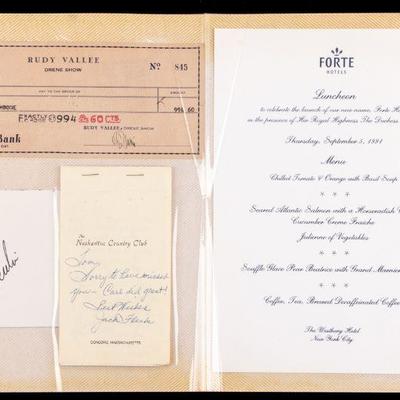 RUDY VALLEE
DRENE SHOW
Nº 845
PAY TO THE ORDER OF
AMOUNT
994 60
0994 60 CTS
RUDY VALLEE, DRENE SHOW
Bank
The
Nashawtuc Country Club
Sorry to have missed
you - Care did great!
Best Wishes
Jack
CONCORD, MASSACHUSETTS
FORTE
HOTELS
Luncheon
to celebrate the launch of our new name, Forte Ho
in the presence of Her Royal Highness The Duchess
Thursday, September 5, 1991
Menu
Chilled Tomato & Orange with Basil Soup
Seared Atlantic Salmon with a Horseradish
Cucumber Creme Fraiche
Julienne of Vegetables
Souffle Glace Pear Beatrice with Grand Marnier
Coffee, Tea, Brewed Decaffeinated Coffee
The Westbury Hotel
New York City